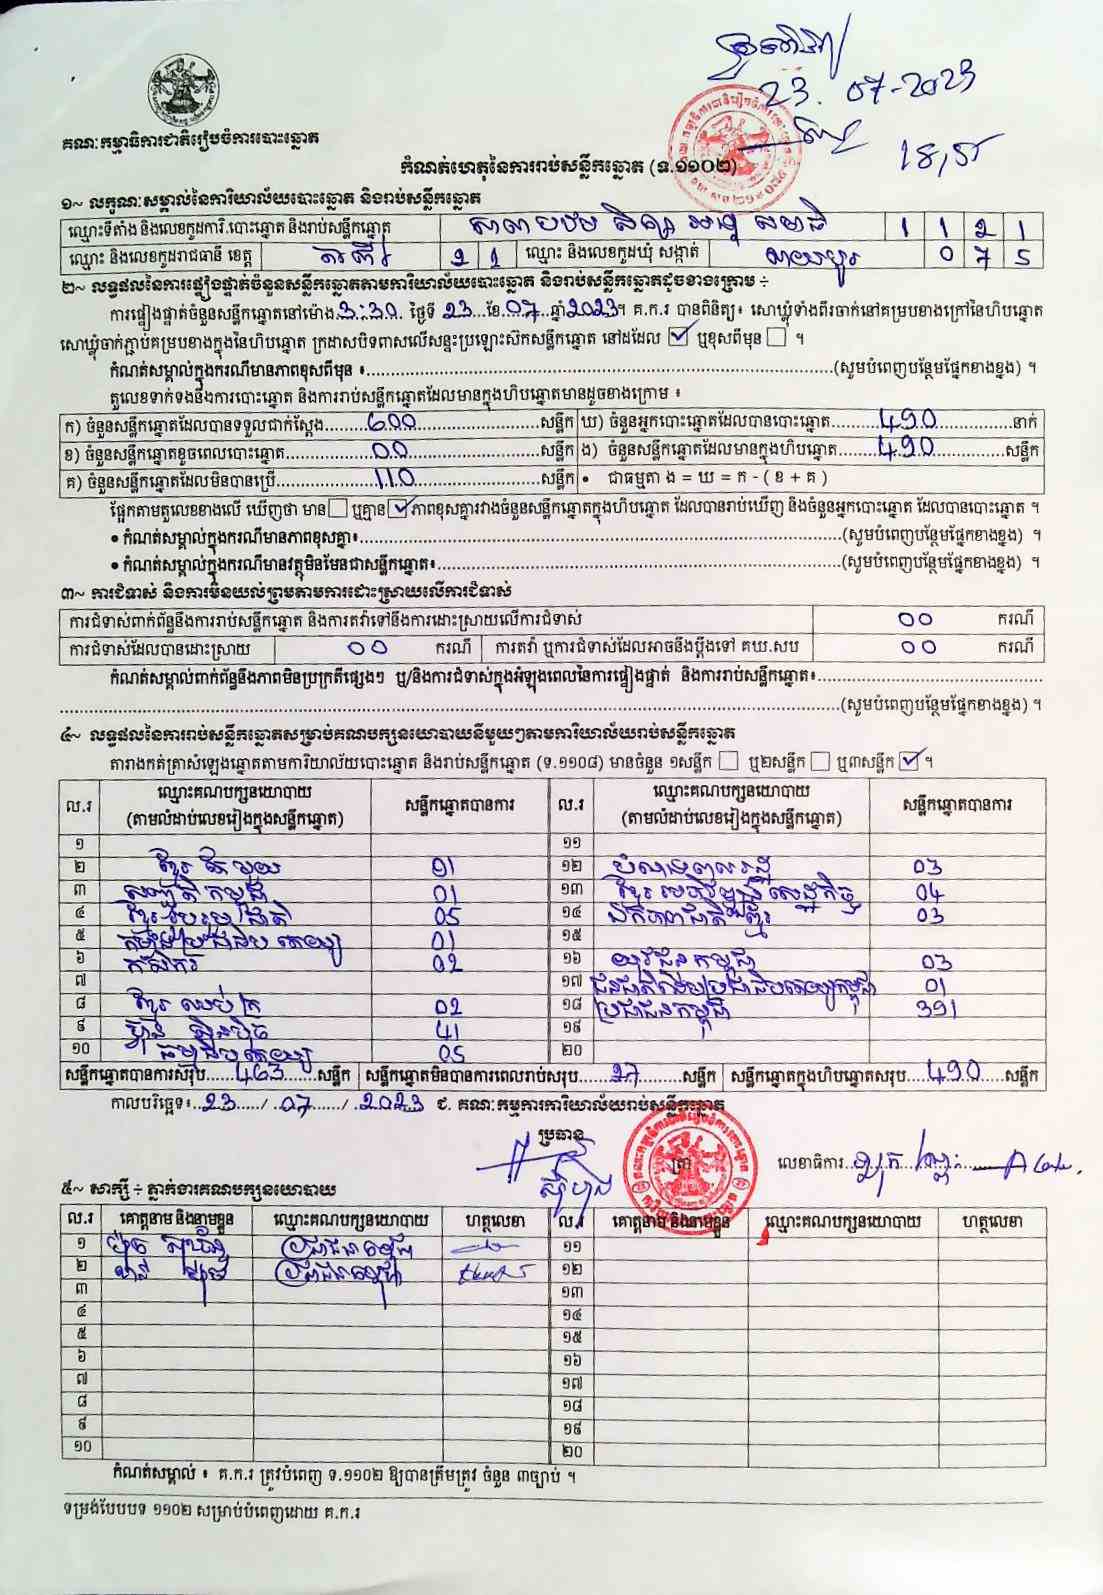 23. 07-2023
18,55
គណៈកម្មាធិការជាតិរៀបចំការបោះឆ្នោត
កំណត់ហេតុនៃការរាប់សន្លឹកឆ្នោត (ទ.១១០២)
១~ លក្ខណៈសម្គាល់នៃការិយាល័យបោះឆ្នោត និងរាប់សន្លឹកឆ្នោត
ឈ្មោះទីតាំង និងលេខកូដការិ.បោះឆ្នោត និងរាប់សន្លឹកឆ្នោត 1 1 2 1
ឈ្មោះ និងលេខកូដរាជធានី ខេត្ត តាកែវ 2 1 ឈ្មោះ និងលេខកូដឃុំ សង្កាត់ 0 7 5
២~ លទ្ធផលនៃការផ្ទៀងផ្ទាត់ចំនួនសន្លឹកឆ្នោតតាមការិយាល័យបោះឆ្នោត និងរាប់សន្លឹកឆ្នោតដូចខាងក្រោម ÷
ការផ្ទៀងផ្ទាត់ចំនួនសន្លឹកឆ្នោតនៅម៉ោង.3:30. ថ្ងៃទី 23 ខែ.07.ឆ្នាំ2023។ គ.ក.រ បានពិនិត្យ៖ សោឃ្លុំទាំងពីរចាក់នៅគម្របខាងក្រៅនៃហិបឆ្នោត
សោឃ្លុំចាក់ភ្ជាប់គម្របខាងក្នុងនៃហិបឆ្នោត ក្រដាសបិទពាសលើសន្ទះប្រឡោះស៊កសន្លឹកឆ្នោត នៅដដែល ☑ ឬខុសពីមុន ☐ ។
កំណត់សម្គាល់ក្នុងករណីមានភាពខុសពីមុន ៖ (សូមបំពេញបន្ថែមផ្នែកខាងខ្នង) ។
តួលេខទាក់ទងនឹងការបោះឆ្នោត និងការរាប់សន្លឹកឆ្នោតដែលមានក្នុងហិបឆ្នោតមានដូចខាងក្រោម ៖
ក) ចំនួនសន្លឹកឆ្នោតដែលបានទទួលជាក់ស្តែង 600 សន្លឹក ឃ) ចំនួនអ្នកបោះឆ្នោតដែលបានបោះឆ្នោត 490 នាក់
ខ) ចំនួនសន្លឹកឆ្នោតខូចពេលបោះឆ្នោត 00 សន្លឹក ង) ចំនួនសន្លឹកឆ្នោតដែលមានក្នុងហិបឆ្នោត 490 សន្លឹក
គ) ចំនួនសន្លឹកឆ្នោតដែលមិនបានប្រើ 110 សន្លឹក • ជាធម្មតា ង = ឃ = ក - ( ខ + គ )
ផ្អែកតាមតួលេខខាងលើ ឃើញថា មាន☐ ឬគ្មាន☑ ភាពខុសគ្នារវាងចំនួនសន្លឹកឆ្នោតក្នុងហិបឆ្នោត ដែលបានរាប់ឃើញ និងចំនួនអ្នកបោះឆ្នោត ដែលបានបោះឆ្នោត ។
• កំណត់សម្គាល់ក្នុងករណីមានភាពខុសគ្នា៖ (សូមបំពេញបន្ថែមផ្នែកខាងខ្នង) ។
• កំណត់សម្គាល់ក្នុងករណីមានវត្ថុមិនមែនជាសន្លឹកឆ្នោត៖ (សូមបំពេញបន្ថែមផ្នែកខាងខ្នង) ។
៣~ ការជំទាស់ និងការមិនយល់ព្រមតាមការដោះស្រាយលើការជំទាស់
ការជំទាស់ពាក់ព័ន្ធនឹងការរាប់សន្លឹកឆ្នោត និងការតវ៉ាទៅនឹងការដោះស្រាយលើការជំទាស់ 00 ករណី
ការជំទាស់ដែលបានដោះស្រាយ 00 ករណី ការតវ៉ា ឬការជំទាស់ដែលអាចនឹងប្តឹងទៅ គឃ.សប 00 ករណី
កំណត់សម្គាល់ពាក់ព័ន្ធនឹងភាពមិនប្រក្រតីផ្សេងៗ ឬ/និងការជំទាស់ក្នុងអំឡុងពេលនៃការផ្ទៀងផ្ទាត់ និងការរាប់សន្លឹកឆ្នោត៖
(សូមបំពេញបន្ថែមផ្នែកខាងខ្នង) ។
៤~ លទ្ធផលនៃការរាប់សន្លឹកឆ្នោតសម្រាប់គណបក្សនយោបាយនីមួយៗតាមការិយាល័យរាប់សន្លឹកឆ្នោត
តារាងកត់ត្រាសំឡេងឆ្នោតតាមការិយាល័យបោះឆ្នោត និងរាប់សន្លឹកឆ្នោត (ទ.១១០៨) មានចំនួន ១សន្លឹក ☐ ឬ២សន្លឹក ☐ ឬ៣សន្លឹក ☑ ។
ល.រ ឈ្មោះគណបក្សនយោបាយ (តាមលំដាប់លេខរៀងក្នុងសន្លឹកឆ្នោត) សន្លឹកឆ្នោតបានការ ល.រ ឈ្មោះគណបក្សនយោបាយ (តាមលំដាប់លេខរៀងក្នុងសន្លឹកឆ្នោត) សន្លឹកឆ្នោតបានការ
១ ១១
២ ខ្មែរ តែ មួយ 01 ១២ 03
៣ សញ្ជាតិ កម្ពុជា 01 ១៣ ខ្មែរ អភិវឌ្ឍន៍ សេដ្ឋកិច្ច 04
៤ ខ្មែរ រួបរួម ជាតិ 05 ១៤ ឯកភាពជាតិ ខ្មែរ 03
៥ 01 ១៥
៦ កសិករ 02 ១៦ យុវជន កម្ពុជា 03
៧ ១៧ 01
៨ ខ្មែរ ឈប់ ក្រ 02 ១៨ ប្រជាជនកម្ពុជា 391
៩ ហ៊្វុនស៊ិនប៉ិច 41 ១៩
១០ ធម្មាធិបតេយ្យ 05 ២០
សន្លឹកឆ្នោតបានការសរុប 463 សន្លឹក សន្លឹកឆ្នោតមិនបានការពេលរាប់សរុប 27 សន្លឹក សន្លឹកឆ្នោតក្នុងហិបឆ្នោតសរុប 490 សន្លឹក
កាលបរិច្ឆេទ៖ 23 / 07 / 2023 ជ. គណៈកម្មការការិយាល័យរាប់សន្លឹកឆ្នោត
ប្រធាន
ត្រា
លេខាធិការ
៥~ សាក្សី ÷ ភ្នាក់ងារគណបក្សនយោបាយ
ល.រ គោត្តនាម និងនាមខ្លួន ឈ្មោះគណបក្សនយោបាយ ហត្ថលេខា ល.រ គោត្តនាម និងនាមខ្លួន ឈ្មោះគណបក្សនយោបាយ ហត្ថលេខា
១ ប្រជាជនកម្ពុជា ១១
២ ប្រជាជនកម្ពុជា ១២
៣ ១៣
៤ ១៤
៥ ១៥
៦ ១៦
៧ ១៧
៨ ១៨
៩ ១៩
១០ ២០
កំណត់សម្គាល់ ៖ គ.ក.រ ត្រូវបំពេញ ទ.១១០២ ឱ្យបានត្រឹមត្រូវ ចំនួន ៣ច្បាប់ ។
ទម្រង់បែបបទ ១១០២ សម្រាប់បំពេញដោយ គ.ក.រ